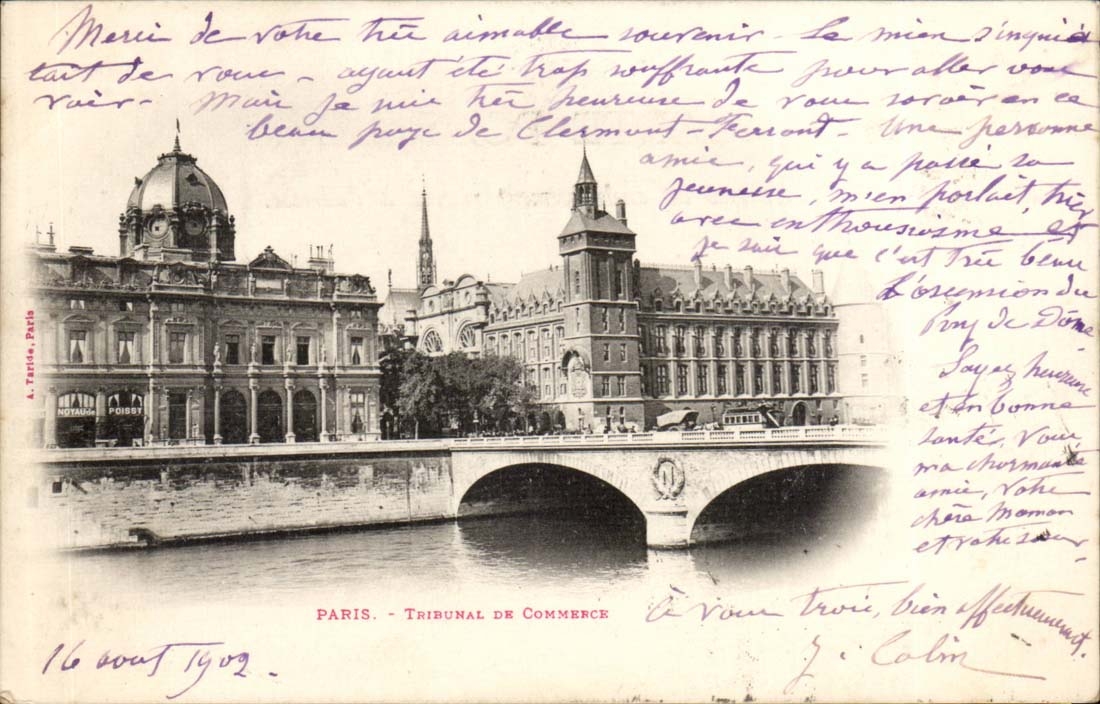 Merci de votre très aimable souvenir. Le mien s'inquié
tait de vous – ayant été trop souffrante pour aller vous
voir – Mais je suis très heureuse de vous savoir en ce
beau pays de Clermont-Ferrant. Une personne
amie, qui y a passé sa
jeunesse, m'en parlait hier
avec enthousiasme, et
je sais que c'est très beau
L'ascension du
Puy de Dôme
Soyez heureuse
et en bonne
santé, vous,
ma charmante
amie, votre
chère Maman
et votre sœur.
à vous trois, bien affectueusement.
J. Colin
A. Taride, Paris
NOYAU de POISSY
PARIS. - TRIBUNAL DE COMMERCE
16 aout 1902.